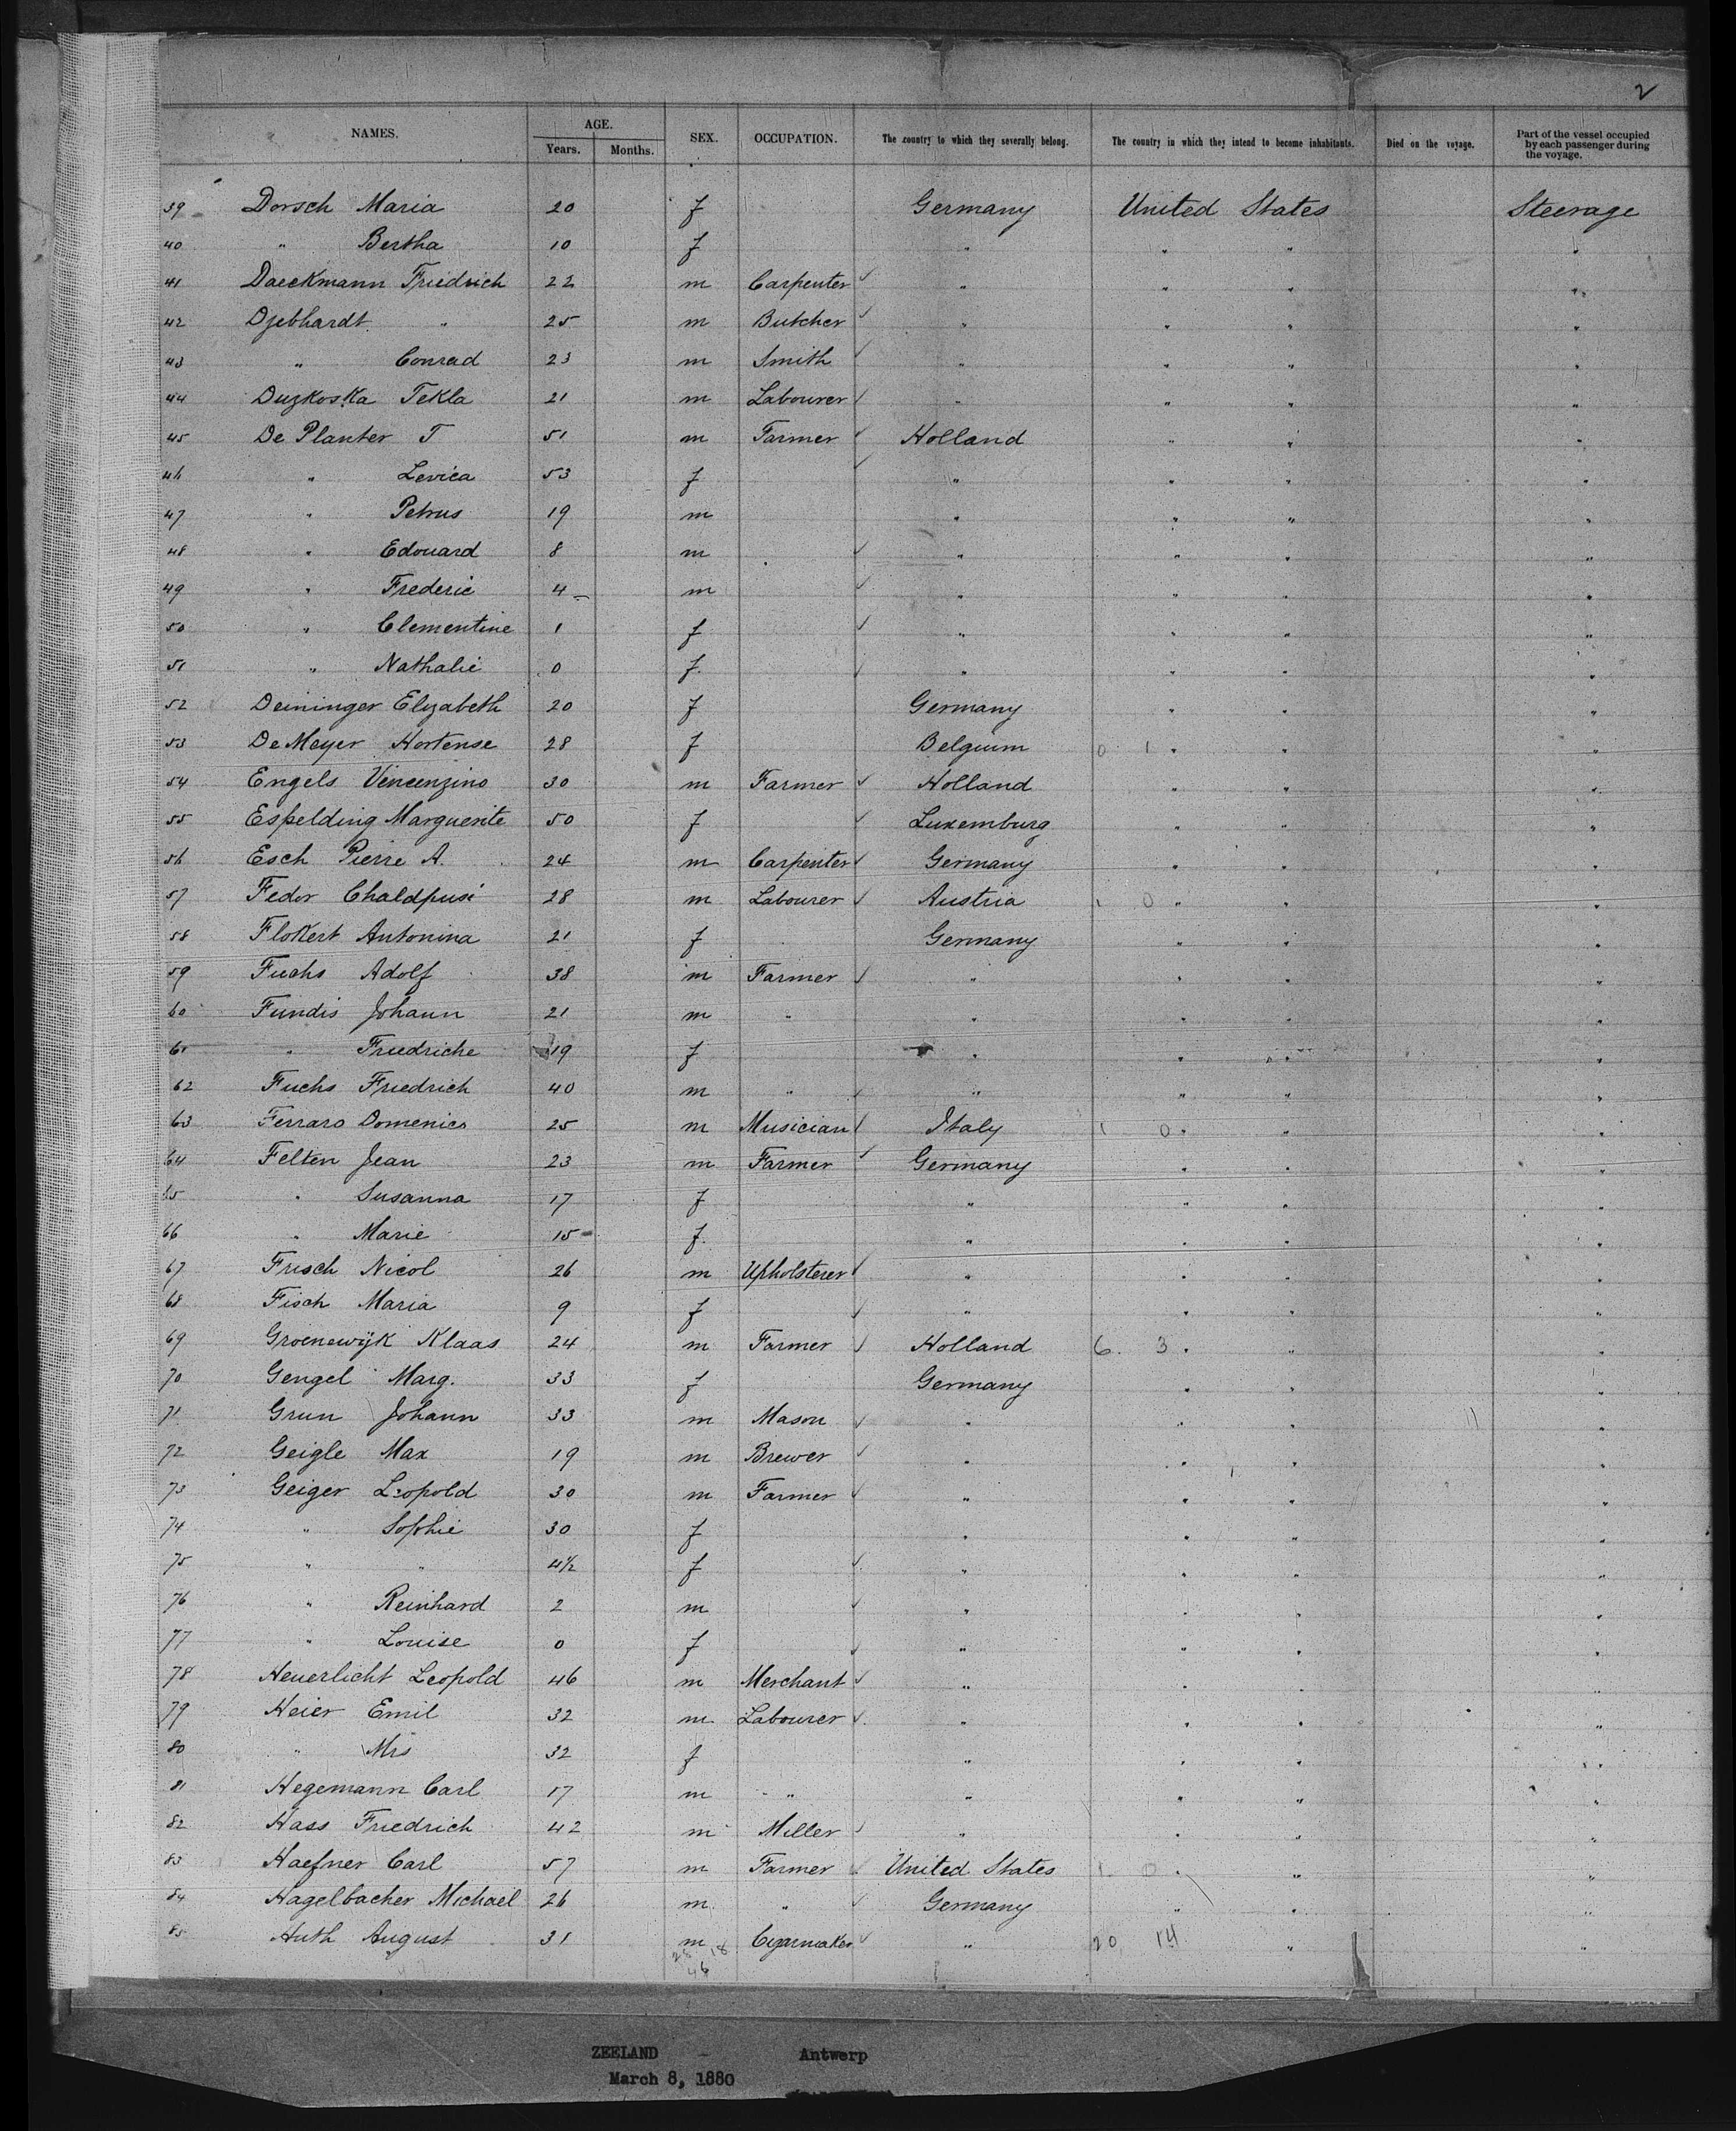 2
NAMES. AGE. Years. Months. SEX. OCCUPATION. The country to which they severally belong. The country in which they intend to become inhabitants. Died on the voyage. Part of the vessel occupied by each passenger during the voyage.
39 Dorsch Maria 20 f Germany United States Steerage
40 " Bertha 10 f " " " "
41 Daeckmann Friedrich 22 m Carpenter " " " "
42 Djebhardt " 25 m Butcher " " " "
43 " Conrad 23 m Smith " " " "
44 Duzkoska Tekla 21 m Labourer " " " "
45 De Planter T 51 m Farmer Holland " " "
46 " Levica 53 f " " " "
47 " Petrus 19 m " " " "
48 " Edouard 8 m " " " "
49 " Frederic 4 m " " " "
50 " Clementine 1 f " " " "
51 " Nathalie 0 f. " " " "
52 Deininger Elyzabeth 20 f Germany " " "
53 De Meyer Hortense 28 f Belgium 0 1 " " "
54 Engels Vincenzino 30 m Farmer Holland " " "
55 Espelding Marguerite 50 f Luxemburg " " "
56 Esch Pierre A. 24 m Carpenter Germany " " "
57 Fedor Chaldpusi 28 m Labourer Austria 1 0 " " "
58 Flokert Antonina 21 f Germany " " "
59 Fuchs Adolf 38 m Farmer " " " "
60 Fundis Johann 21 m " " " " "
61 " Friedriche 19 f " " " "
62 Fuchs Friedrich 40 m " " " " "
63 Ferraro Domenico 25 m Musician Italy 1 0 " " "
64 Felten Jean 23 m Farmer Germany " " "
65 " Susanna 17 f " " " "
66 " Marie 15 f. " " " "
67 Frisch Nicol 26 m Upholsterer " " " "
68 Fisch Maria 9 f " " " "
69 Groenewijk Klaas 24 m Farmer Holland 6. 3 " " "
70 Gengel Marg. 33 f Germany " " "
71 Grun Johann 33 m Mason " " " "
72 Geigle Max 19 m Brewer " " " "
73 Geiger Leopold 30 m Farmer " " " "
74 " Sophie 30 f " " " "
75 " " 4½ f " " " "
76 " Reinhard 2 m " " " "
77 " Louise 0 f " " " "
78 Heuerlicht Leopold 46 m Merchant " " " "
79 Heier Emil 32 m Labourer " " " "
80 " Mrs 32 f " " " "
81 Hegemann Carl 17 m " " " " "
82 Hass Friedrich 42 m Miller " " " "
83 Haefner Carl 57 m Farmer United States 1 0 " " "
84 Hagelbacher Michael 26 m " Germany " " "
85 Huth August 31 m Cygarmaker " 20 14 " "
28 18
46
ZEELAND - Antwerp
March 8, 1880